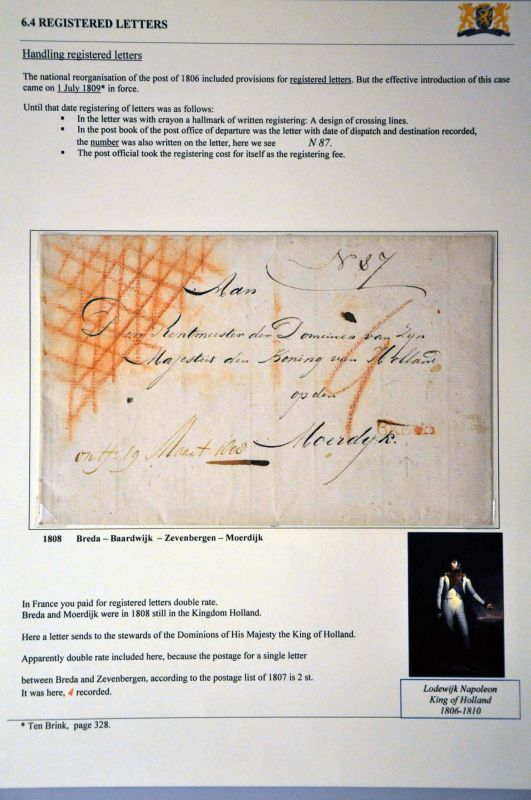 6.4 REGISTERED LETTERS
Handling registered letters
The national reorganisation of the post of 1806 included provisions for registered letters. But the effective introduction of this case
came on 1 July 1809* in force.
Until that date registering of letters was as follows:
▪ In the letter was with crayon a hallmark of written registering: A design of crossing lines.
▪ In the post book of the post office of departure was the letter with date of dispatch and destination recorded,
the number was also written on the letter, here we see N 87.
▪ The post official took the registering cost for itself as the registering fee.
N 87
Aan
Den Rentmeester der Domeinen van Zyn
Majesteit den Koning van Holland
op den
Moerdyk.
BREDA
ontf: 19 Maart 1808
1808 Breda – Baardwijk – Zevenbergen – Moerdijk
In France you paid for registered letters double rate.
Breda and Moerdijk were in 1808 still in the Kingdom Holland.
Here a letter sends to the stewards of the Dominions of His Majesty the King of Holland.
Apparently double rate included here, because the postage for a single letter
between Breda and Zevenbergen, according to the postage list of 1807 is 2 st.
It was here, 4 recorded.
Lodewijk Napoleon
King of Holland
1806-1810
* Ten Brink, page 328.